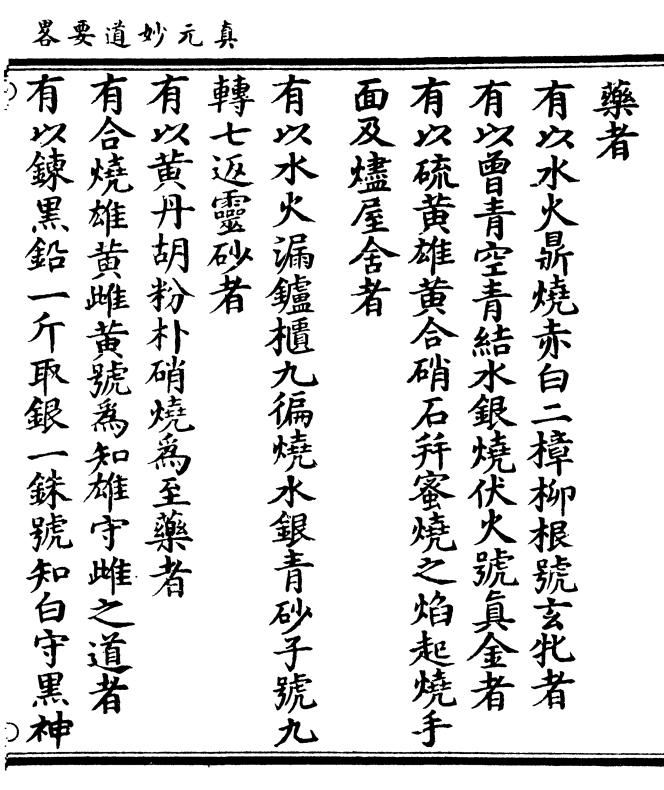 真元妙道要畧
藥者
有以水火鼎燒赤白二樟柳根號玄牝者
有以曾青空青結水銀燒伏火號眞金者
有以硫黄雄黄合硝石并蜜燒之焰起燒手
面及燼屋舍者
有以水火漏鑪櫃九徧燒水銀青砂子號九
轉七返靈砂者
有以黄丹胡粉朴硝燒爲至藥者
有合燒雄黄雌黄號爲知雄守雌之道者
有以鍊黒鉛一斤取銀一銖號知白守黒神